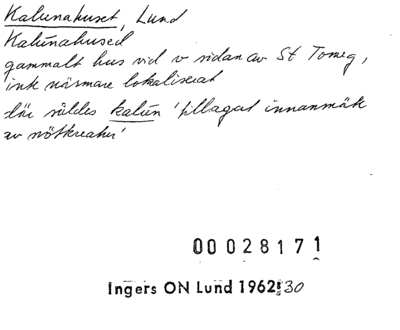 Kalunahuset, Lund
Kalunahused
gammalt hus vid v sidan av St Tomeg,
ink närmare lokaliserat
där såldes kalun 'tillagat innanmäte
av nötkreatur'
00028171
Ingers ON Lund 1962:30